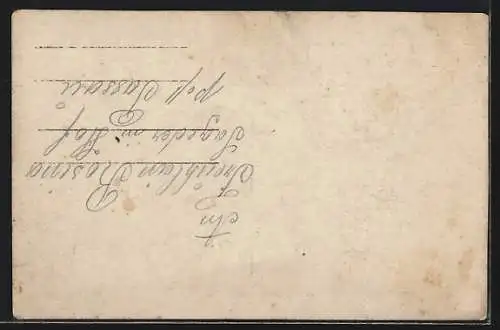 An
Fräulein Rosina
Sageder in Hof
post Passau